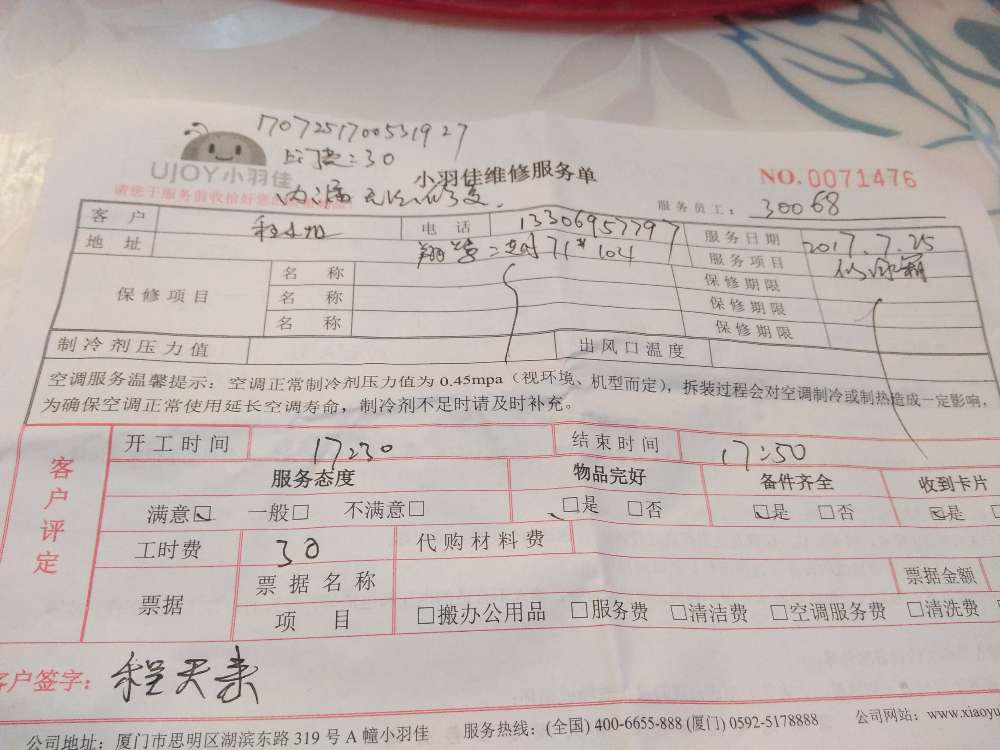 1707251700531927
上门费:30
UJOY小羽佳
小羽佳维修服务单
NO. 0071476
请您于服务前收拾好您
内漏 无法修复.
服务员工: 30068
客 户 电 话 13306957797 服务日期 2017.7.25
地 址 翔鹭 71# 104 服务项目
保修项目 名 称 保修期限
名 称 保修期限
名 称 保修期限
制冷剂压力值 出风口温度
空调服务温馨提示：空调正常制冷剂压力值为 0.45mpa（视环境、机型而定），拆装过程会对空调制冷或制热造成一定影响，
为确保空调正常使用延长空调寿命，制冷剂不足时请及时补充。
客户评定
开工时间 17:30 结束时间 17:50
服务态度 物品完好 备件齐全 收到卡片
满意☑ 一般□ 不满意□ ☑是 □否 ☑是 □否 ☑是
工时费 30 代购材料费
票据 票据名称 票据金额
项 目 □搬办公用品 □服务费 □清洁费 □空调服务费 □清洗费
客户签字: 程天来
公司地址: 厦门市思明区湖滨东路 319 号 A 幢小羽佳 服务热线: (全国) 400-6655-888 (厦门) 0592-5178888 公司网站: www.xiaoyu